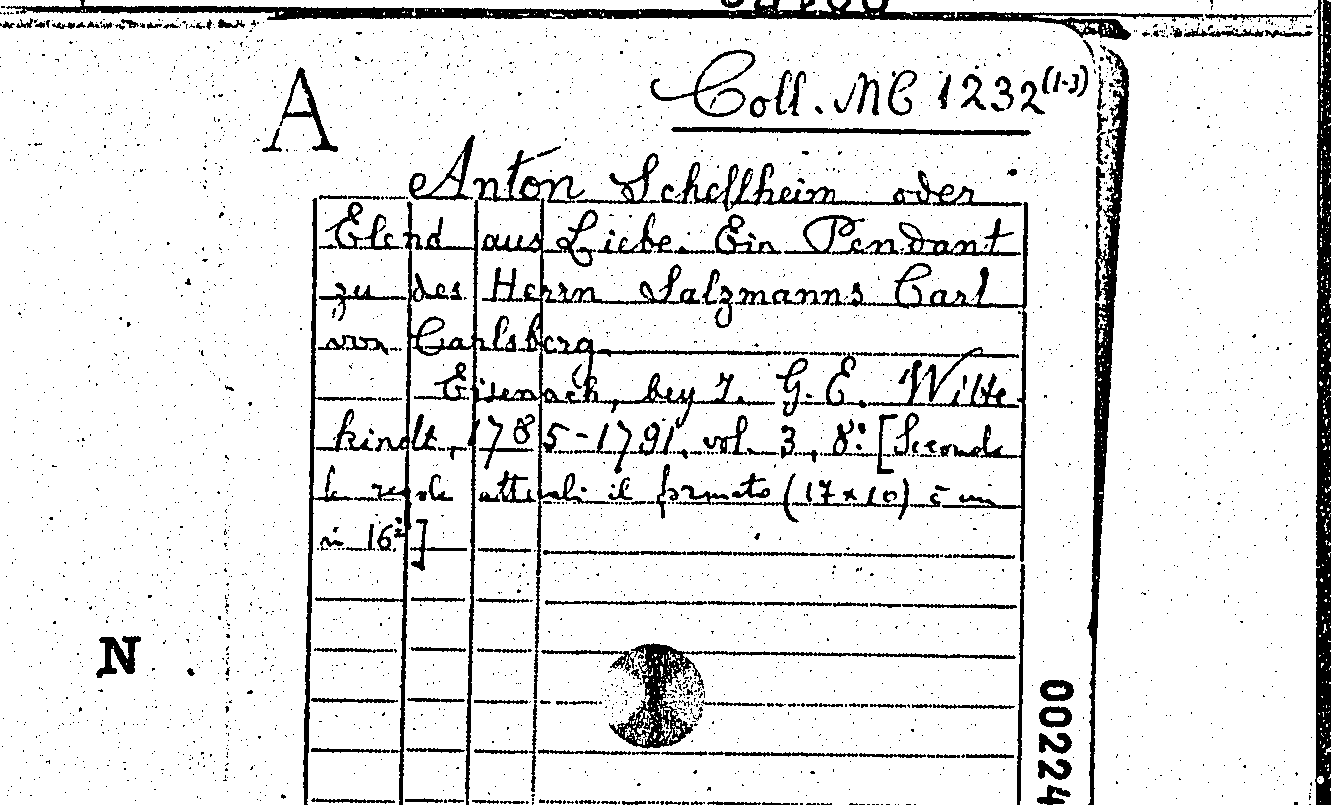 A
Coll. MC 1232(1-3)
Anton Schellheim oder
Elend aus Liebe. Ein Pendant
zu des Herrn Salzmanns Carl
von Carlsberg.
Eisenach, bey J. G. E. Witte
kindt, 1785-1791, vol. 3, 8.° [Secondo
le regole attuali il formato (17x10) è un
in 16°]
N
00224